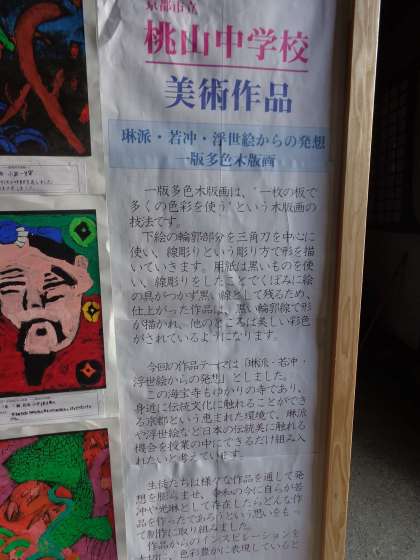 京都市立
桃山中学校
美術作品
琳派・若冲・浮世絵からの発想
一版多色木版画
一版多色木版画は、"一枚の板で
多くの色彩を使う"という木版画の
技法です。
下絵の輪郭部分を三角刀を中心に
使い、線彫りという彫り方で形を描
いていきます。用紙は黒いものを使
い、線彫りをしたことでくぼみに絵
の具がつかず黒い線として残るため、
仕上がった作品は、黒い輪郭線で形
が描かれ、他のところは美しい彩色
がされているようになります。
今回の作品テーマは「琳派・若冲・
浮世絵からの発想」としました。
この海宝寺もゆかりの寺であり、
身近に伝統文化に触れることができ
る京都という恵まれた環境で、琳派
や浮世絵など日本の伝統美に触れる
機会を授業の中にできるだけ組み入
れたいと考えています。
生徒たちは様々な作品を通して発
想を膨らませ、
今に自らが若
冲や光琳として存在したらどんな作
品を作ったであろうという思いをもっ
て制作に取り組みました。
作品からのインスピレーションを
色彩豊かに表現していると